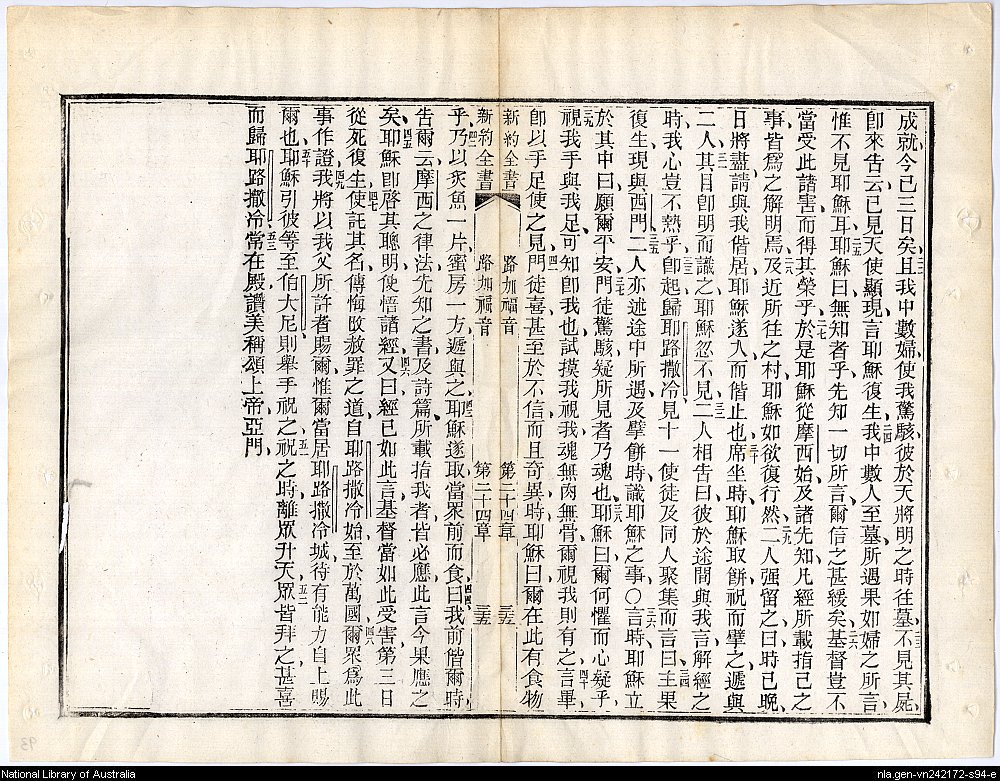 成就今已三日矣且我中數婦使我驚駭彼於天將明之時往墓不見其屍
卽來告云已見天使顯現言耶穌復生我中數人至墓所遇果如婦之所言
惟不見耶穌耳耶穌曰無知者乎先知一切所言爾信之甚緩矣基督豈不
當受此諸害而得其榮乎於是耶穌從摩西始及諸先知凡經所載指己之
事皆爲之解明焉及近所往之村耶穌如欲復行然二人强留之曰時已晚
日將盡請與我偕居耶穌遂入而偕止也席坐時耶穌取餅祝而擘之遞與
二人其目卽明而識之耶穌忽不見二人相告曰彼於途間與我言解經之
時我心豈不熱乎卽起歸耶路撒冷見十一使徒及同人聚集而言曰主果
復生現與西門二人亦述途中所遇及擘餅時識耶穌之事〇言時耶穌立
於其中曰願爾平安門徒驚駭疑所見者乃魂也耶穌曰爾何懼而心疑乎
視我手與我足可知卽我也試摸我視我魂無肉無骨爾視我則有之言畢
卽以手足使之見門徒喜甚至於不信而且奇異時耶穌曰爾在此有食物
新約全書 路加福音 第二十四章
新約全書 路加福音 第二十四章
乎乃以炙魚一片蜜房一方遞與之耶穌遂取當衆前而食曰我前偕爾時
告爾云摩西之律法先知之書及詩篇所載指我者皆必應此言今果應之
矣耶穌卽啓其聰明使悟諸經又曰經已如此言基督當如此受害第三日
從死復生使託其名傳悔改赦罪之道自耶路撒冷始至於萬國爾衆爲此
事作證我將以我父所許者賜爾惟爾當居耶路撒冷城待有能力自上賜
爾也耶穌引彼等至伯大尼則舉手祝之祝之時離衆升天衆皆拜之甚喜
而歸耶路撒冷常在殿讚美稱頌上帝亞門
National Library of Australia
nla.gen-vn242172-s94-e